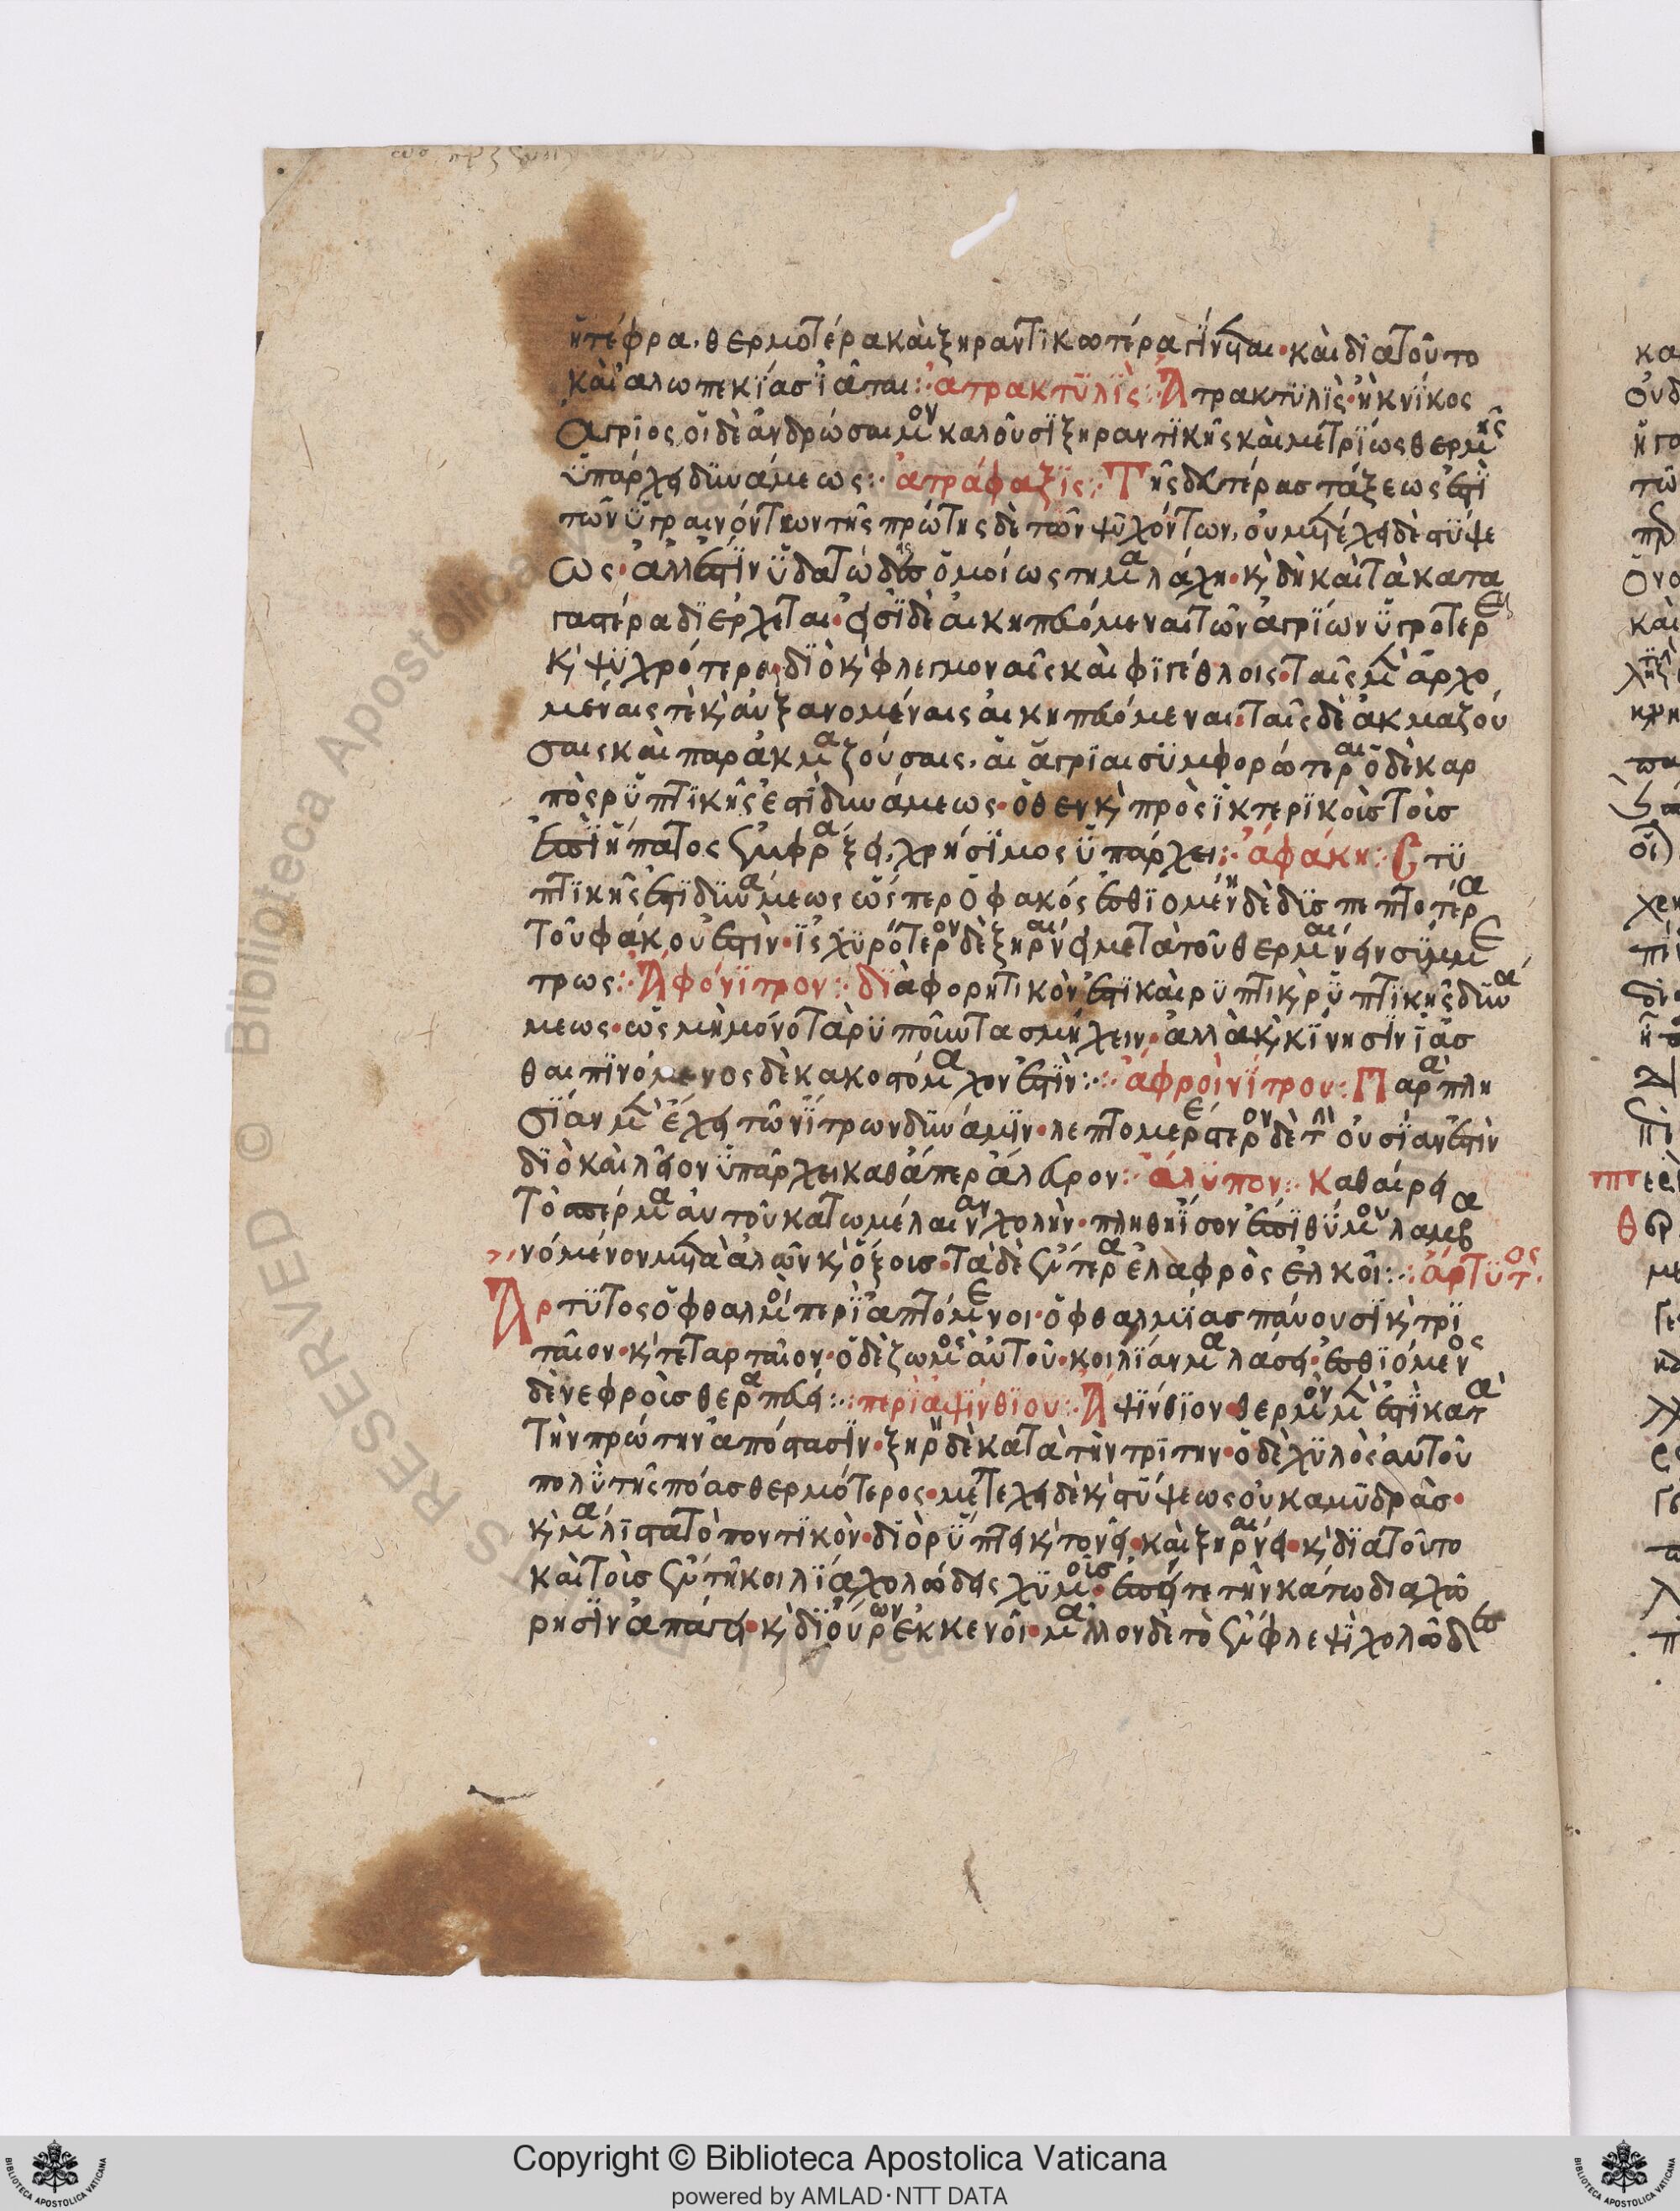 ἡ τέφρα, θερμοτέρα καὶ ξηραντικωτέρα γίνεται· καὶ διατοῦτο
καὶ ἀλωπεκίασ ἰᾶται: ἀτρακτϋλὶς: Ἀτρακτϋλὶς· ἡ κνίκος
ἄγριος, οἱ δὲ ἀνδρώσαιμον καλοῦσϊ ξηραντικῆς καὶ μετρίως θερμῆς
ὑπάρχει δϋνάμεως: ἀτράφαξϊς: Τῆς δευτέρασ τάξεως ἐστὶ
τῶν ὑγραινόντων τῆς πρώτης δὲ τῶν ψϋχόντων, οὐ μετέχει δὲ στύψε
ως· ἀλλ ἐστὶν ὑδατώδης ὁμοίως τη μαλάχη· κ δὴ καὶ τὰ κατα
γαστέρα διέρχεται· εἰσὶ δὲ αἱ κηπευόμεναι τῶν ἀγρίων ὑγρότερε
κ ψϋχρότεραι διὸ κ φλεγμοναῖς καὶ φϊγέθλοις· ταῖς μὲν ἀρχο
μέναις τὲ κ αὐξανομέναις αἱ κηπευόμεναι· ταῖς δὲ ἀκμαζού
σαις καὶ παρακμαζούσαις, αἱ ἄγριαι συμφορώτεραι ὁ δὲ καρ
πὸς ρϋπτικῆς ἐστὶ δυνάμεως· ὅθεν κ πρὸς ἰκτερικοὺσ τοὺσ
ἐπὶ ἥπατος ἐμφράξει, χρήσιμος ὑπάρχει: ἀφάκη: Στϋ
πτικῆς ἐστὶ δυνάμεως ὥσπερ ὁ φακός ἐσθιομένη δὲ δϋσπεπτοτέρα
τοῦ φάκου ἐστὶν· ἰσχϋρότερον δὲ ξηραίνει μετὰ τοῦ θερμαίνειν συμμέ
τρως: Ἀφόνιτρον: διὰφορητικὸν ἐστὶ καὶ ρϋπτικ, ρϋπτικῆς δϋνά
μεως· ὡς μὴ μόνο τὰ ρϋποῦντα σμήχειν· ἀλλὰ κ κίνησϊν ἰᾶσ
θαι πϊνόμενος δὲ κακοστόμαχον ἐστὶν: ἀφροίνίτρου: Παραπλη
σίαν μὲν ἔχει τῶ νίτρων δύναμιν· λεπτομερέστερον δὲ τὴν οὐσίαν ἐστὶν
διὸ καὶ λεῖον ὑπάρχει καθάπερ ἄλευρον: ἄλϋπον: καθαίρει
τὸ σπέρμα αὐτοῦ κάτω μέλαιναν χολὴν· πληθηΐσον ἐπιθΰμου λαμβα
νόμενον μετὰ ἁλῶν κ ὄξουσ· τὰ δὲ ἔντερα ἐλαφρὸς ἑλκοῖ: ἄρτϋτος·
Ἄρτϋτος ὀφθαλμὸ περιἀπτόμενοι· ὀφθαλμίασ παύουσϊ κ τρι
ταῖον· κ τεταρταῖον· ὁ δὲ ζωμὸς αὐτοῦ· κοιλίαν μαλάσει· ἐσθιόμενος
δὲ νεφροὺσ θεραπεύει: περὶ ἀψϊνθίου: Ἀψίνθιον θερμὸν μὲν ἐστὶ κατὰ
τὴν πρώτην ἀπόστασϊν· ξηρὴ δὲ κατὰ τὴν τρίτην· ὁ δὲ χϋλὸς αὐτοῦ
πολϋ τῆς πόασ θερμότερος· μετέχει δὲ κ στύψεως οὐκ ἀμυδρᾶσ·
κ μάλιστα τὸ ποντικὸν· διὸ ρϋπτει κ τονεῖ· καὶ ξηραίνει· κ διατοῦτο
καὶ τοὺσ ἐν τῆ κοιλία χολώδεις χϋμοὺσ· ἐπεί τε τὴν κάτω διαχώ
ρησϊν ἀπάγει· κ διούρων ἐκκενοῖ· μᾶλλον δὲ τὸ ἐν φλεψὶ χολῶδες